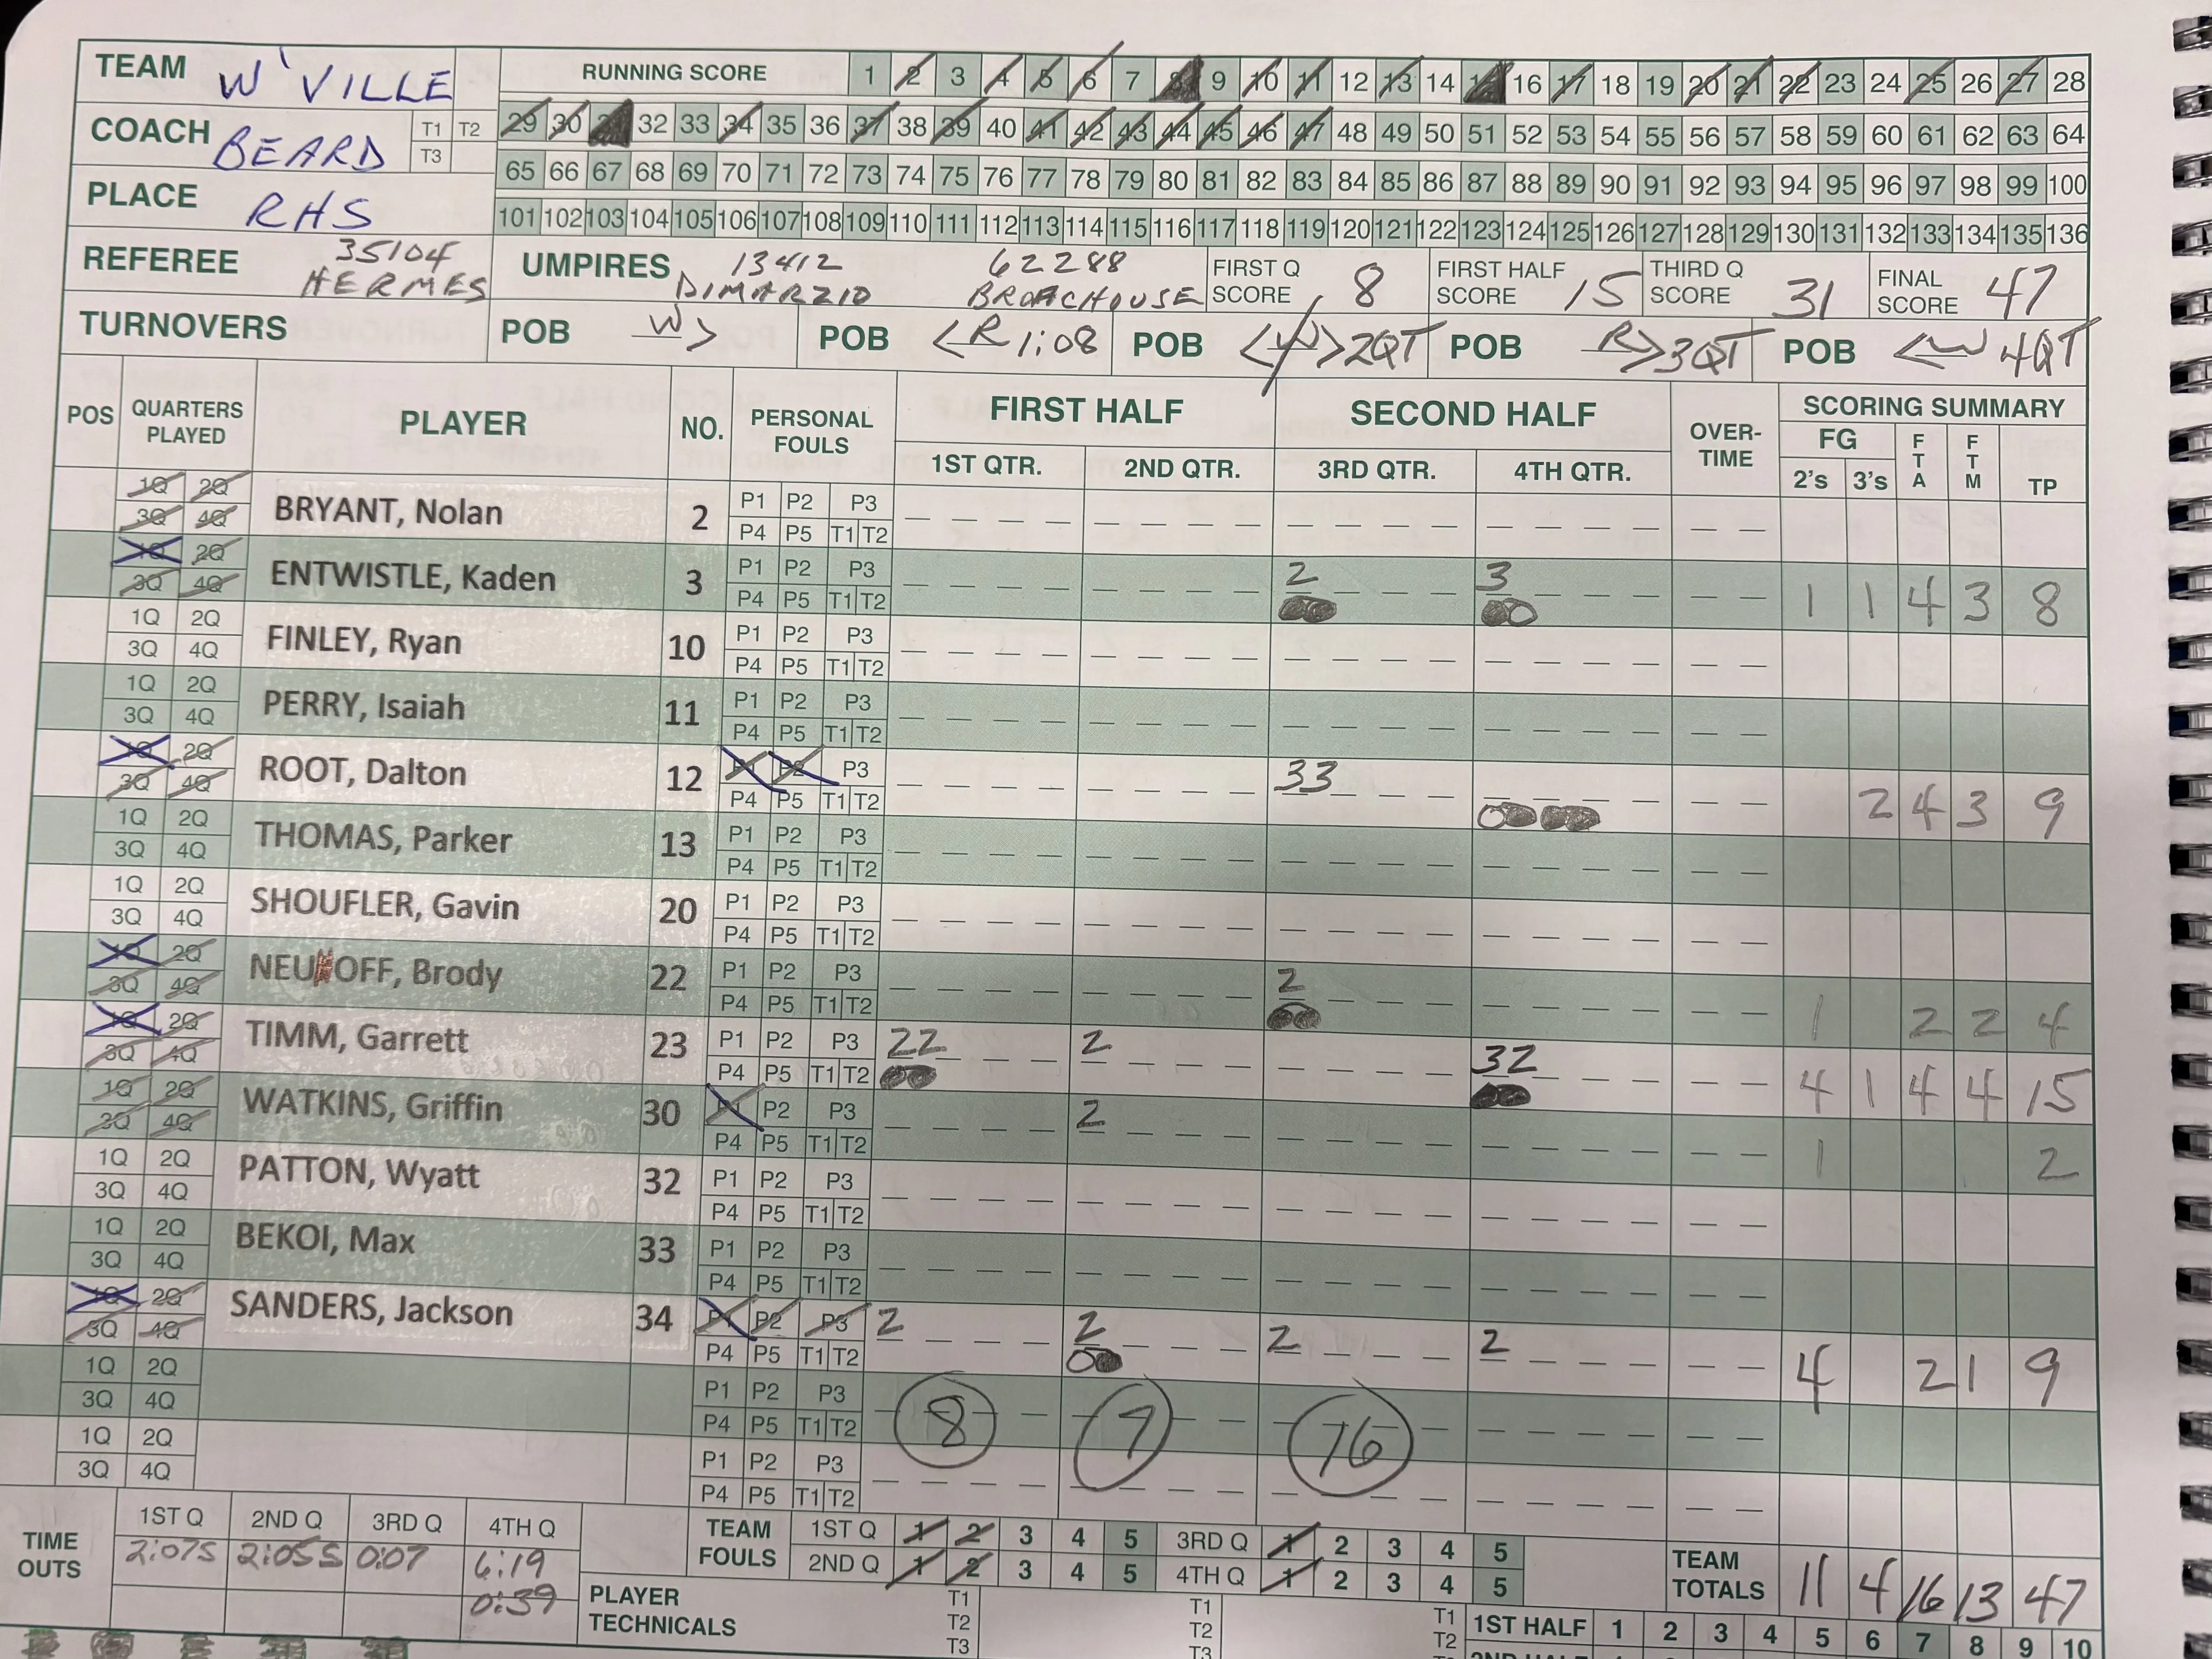 TEAM W'VILLE RUNNING SCORE 1 2 3 4 5 6 7 8 9 10 11 12 13 14 15 16 17 18 19 20 21 22 23 24 25 26 27 28
COACH BEARD T1 T2 T3 29 30 31 32 33 34 35 36 37 38 39 40 41 42 43 44 45 46 47 48 49 50 51 52 53 54 55 56 57 58 59 60 61 62 63 64
65 66 67 68 69 70 71 72 73 74 75 76 77 78 79 80 81 82 83 84 85 86 87 88 89 90 91 92 93 94 95 96 97 98 99 100
PLACE RHS 101 102 103 104 105 106 107 108 109 110 111 112 113 114 115 116 117 118 119 120 121 122 123 124 125 126 127 128 129 130 131 132 133 134 135 136
REFEREE 35104 HERMES UMPIRES 13412 DIMARZIO 62288 BROACHOUSE FIRST Q SCORE 8 FIRST HALF SCORE 15 THIRD Q SCORE 31 FINAL SCORE 47
TURNOVERS POB W> POB <R 1:08 POB <W> 2QT POB R> 3QT POB <W 4QT
POS QUARTERS PLAYED PLAYER NO. PERSONAL FOULS FIRST HALF SECOND HALF OVER-TIME SCORING SUMMARY
1ST QTR. 2ND QTR. 3RD QTR. 4TH QTR. FG 2's 3's FTA FTM TP
1Q 2Q BRYANT, Nolan 2 P1 P2 P3
3Q 4Q P4 P5 T1 T2
1Q 2Q ENTWISTLE, Kaden 3 P1 P2 P3 2 3 1 1 4 3 8
3Q 4Q P4 P5 T1 T2
1Q 2Q FINLEY, Ryan 10 P1 P2 P3
3Q 4Q P4 P5 T1 T2
1Q 2Q PERRY, Isaiah 11 P1 P2 P3
3Q 4Q P4 P5 T1 T2
1Q 2Q ROOT, Dalton 12 P1 P2 P3 33 2 4 3 9
3Q 4Q P4 P5 T1 T2
1Q 2Q THOMAS, Parker 13 P1 P2 P3
3Q 4Q P4 P5 T1 T2
1Q 2Q SHOUFLER, Gavin 20 P1 P2 P3
3Q 4Q P4 P5 T1 T2
1Q 2Q NEUHOFF, Brody 22 P1 P2 P3 2 1 2 2 4
3Q 4Q P4 P5 T1 T2
1Q 2Q TIMM, Garrett 23 P1 P2 P3 22 2 32 4 1 4 4 15
3Q 4Q P4 P5 T1 T2
1Q 2Q WATKINS, Griffin 30 P1 P2 P3 2 1 2
3Q 4Q P4 P5 T1 T2
1Q 2Q PATTON, Wyatt 32 P1 P2 P3
3Q 4Q P4 P5 T1 T2
1Q 2Q BEKOI, Max 33 P1 P2 P3
3Q 4Q P4 P5 T1 T2
1Q 2Q SANDERS, Jackson 34 P1 P2 P3 2 2 2 2 4 2 1 9
3Q 4Q P4 P5 T1 T2
1Q 2Q P1 P2 P3 8 7 16
3Q 4Q P4 P5 T1 T2
1Q 2Q P1 P2 P3
3Q 4Q P4 P5 T1 T2
TIME OUTS 1ST Q 2ND Q 3RD Q 4TH Q TEAM FOULS 1ST Q 1 2 3 4 5 3RD Q 1 2 3 4 5 TEAM TOTALS 11 4 16 13 47
2:07S 2:05S 0:07 6:19 2ND Q 1 2 3 4 5 4TH Q 1 2 3 4 5
0:39 PLAYER TECHNICALS T1 T2 T3 T1 T2 T3 T1 T2 1ST HALF 1 2 3 4 5 6 7 8 9 10